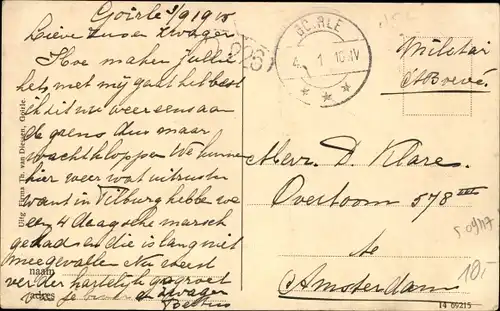 Goirle 3/9 1915
Lieve Zus en Zwager
Hoe maken jullie
het, met mij gaat het best
ik zit nu weer eens aan
de grens dus maar
wachtkloppen We kunnen
hier weer wat uitrusten
want in Tilburg hebbe we
een 4 daagsche marsch
gehad en die is lang niet
meegevallen Nu weest
verder hartelijk gegroet
van je Zwager
naam
adres
Uitg Firma Th. van Diessen, Goirle.
GOIRLE
4 1 10.IV
Militair
Brevé.
Mevr. D. Klare.
Overtoom 578 III
te
Amsterdam
S 09/17
10,-
14 69215